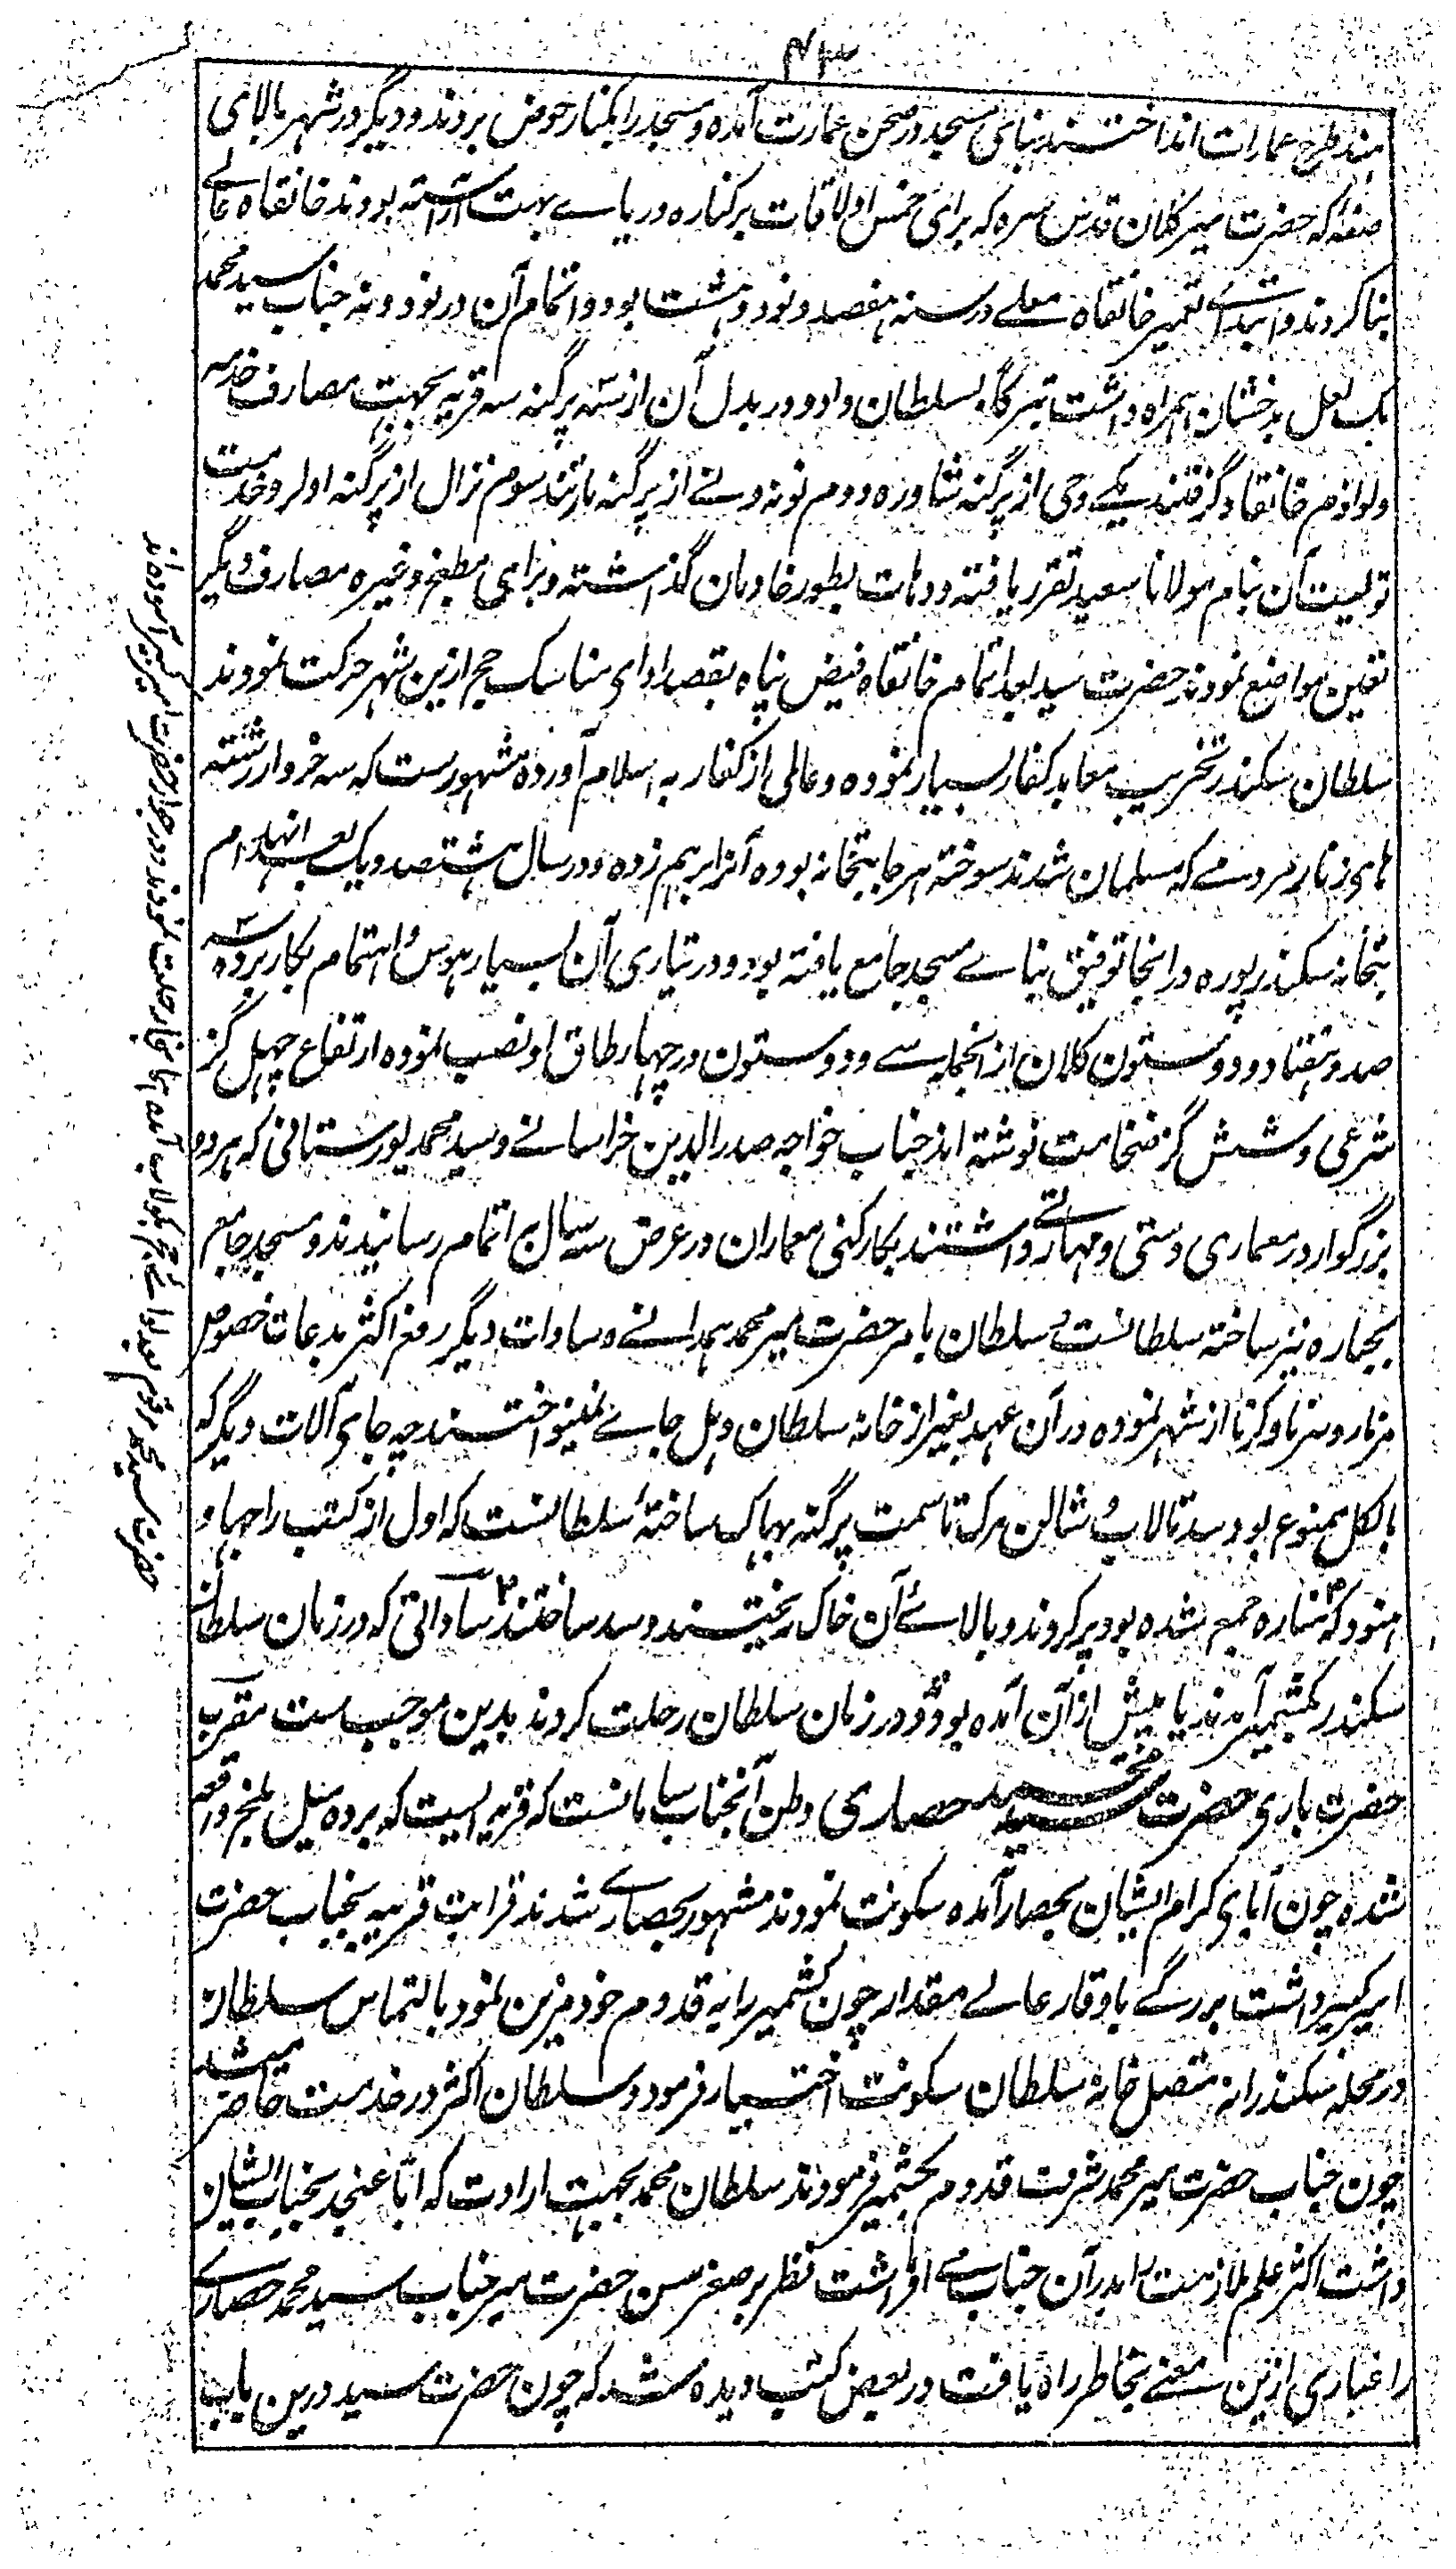 ۴۳
هند طرح عمارات انداختند بنای مسجد در صحن عمارت آمده و مسجد را بکنار حوض بردند و دیگر در شهر بالای
صفه که حضرت میر کلان قدس سره که برای خمس اولاقات بر کناره دریاے بهت آراسته بودند خانقاه عالے
بنا کردند و ابتداے تعمیر خانقاه معلے در سنه هفصد و نود و هشت بود و اتمام آن در نود و نه جناب سید محمد
یک لعل بدخشان همراه داشت تبرکا بسلطان داد و در بدل آن از سه پرگنه سه قریه بجهت مصارف خدمه
و لوازم خانقاه گرفتند یکے وچی از پرگنه شاوره دوم نونه ونے از پرگنه مارتند سوم ترال از پرگنه اولر و خدمت
تولیت آن بنام مولانا سعید تقرر یافته و دهات بطور خادمان گذاشته و برای مطبخ و غیره مصارف دیگر
تعین مواضع نمودند حضرت سید بعد اتمام خانقاه فیض پناه بقصد ادای مناسک حج ازین شهر حرکت نمودند
سلطان سکندر تخریب معابد کفار بسیار نموده و عالمی از کفار به اسلام آورده مشهورست که سه خروار رشته
های زنار مردمے که مسلمان شدند سوخته هر جا بتخانه بوده آنرا برهم زده و در سال هشتصد و یک بعد انهدام
بتخانه سکندرپوره در انجا توفیق بناے مسجد جامع یافته بود و در تیاری آن بسیار هوس و اهتمام بکار برده سه
صد و هفتاد و دو ستون کلان از انجمله سے و دو ستون در چهار طاق او نصب نموده ارتفاع چهل گز
شرعی و شش گز ضخامت نوشته اند جناب خواجه صدرالدین خراسانے و سید محمد لورستانی که هر دو
بزرگوار در معماری دستی و مهارتے داشتند بکارکنی معماران در عرض سه سال بر اتمام رسانیدند و مسجد جامع
بجباره نیز ساخته سلطانست و سلطان بامر حضرت میر محمد همدانے و سادات دیگر رفع اکثر بدعات خصوص
مزمار و سرنا و کرنا از شهر نموده در آن عهد بغیر از خانه سلطان دهل جاے نمینواختند چه جای آلات دیگر که
بالکل ممنوع بود و سد تالاب و شالن مرک تا سمت پرگنه بهاک ساخته سلطانست که اول از کتب راجها و
هنود که شاره جمع شده بود پر کردند و بالاے آن خاک ریختند و سد ساختند ساداتی که در زمان سلطان
سکندر بکشمیر آمدند یا پیش ازان آمده بود و در زمان سلطان رحلت کردند بدین موجب ست مقرب
حضرت باری حضرت سید محمد حصاری وطن آنجناب سامانست که قریه ایست که برده میل بلخ واقع
شده چون آبای کرام ایشان بحصار آمده سکونت نمودند مشهور بحصارے شدند قرابت قریبه بجناب حضرت
امیر کبیر داشت بزرگے باوقار عالے مقدار چون کشمیر را به قدوم خود مزین نمود بالتماس سلطان
در محله سکندرانه متصل خانه سلطان سکونت اختیار فرمود و سلطان اکثر در خدمت حاضر میشد
چون جناب حضرت میر محمد شرف قدوم بکشمیر فرمودند سلطان محمد بجهت ارادت که اباً عنجد بجناب ایشان
داشت اکثر علم ملازمت بدر آن جناب مے افراشت نظر بر صغر سن حضرت میر جناب سید محمد حصارے
را غباری ازین معنے بخاطر راه یافت در بعض کتب دیده شد که چون حضرت سید درین باب